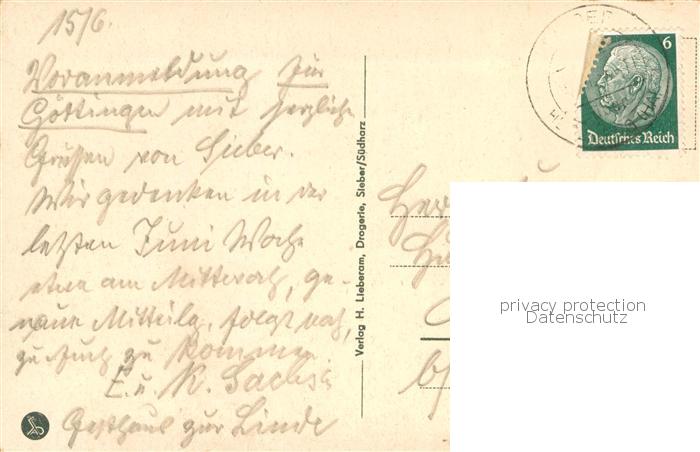 15/6.
Voranmeldung für
Göttingen mit herzliche
Grüssen von Sieber.
Wir gedenken in der
letzten Juni Woche
etwa am Mittwoch, ge-
naue Mitteilg. folgt noch,
zu Euch zu kommen
E. u. K. Sachse
Gasthaus zur Linde
Verlag H. Lieberam, Drogerie, Sieber/Südharz
6
Deutsches Reich
privacy protection
Datenschutz